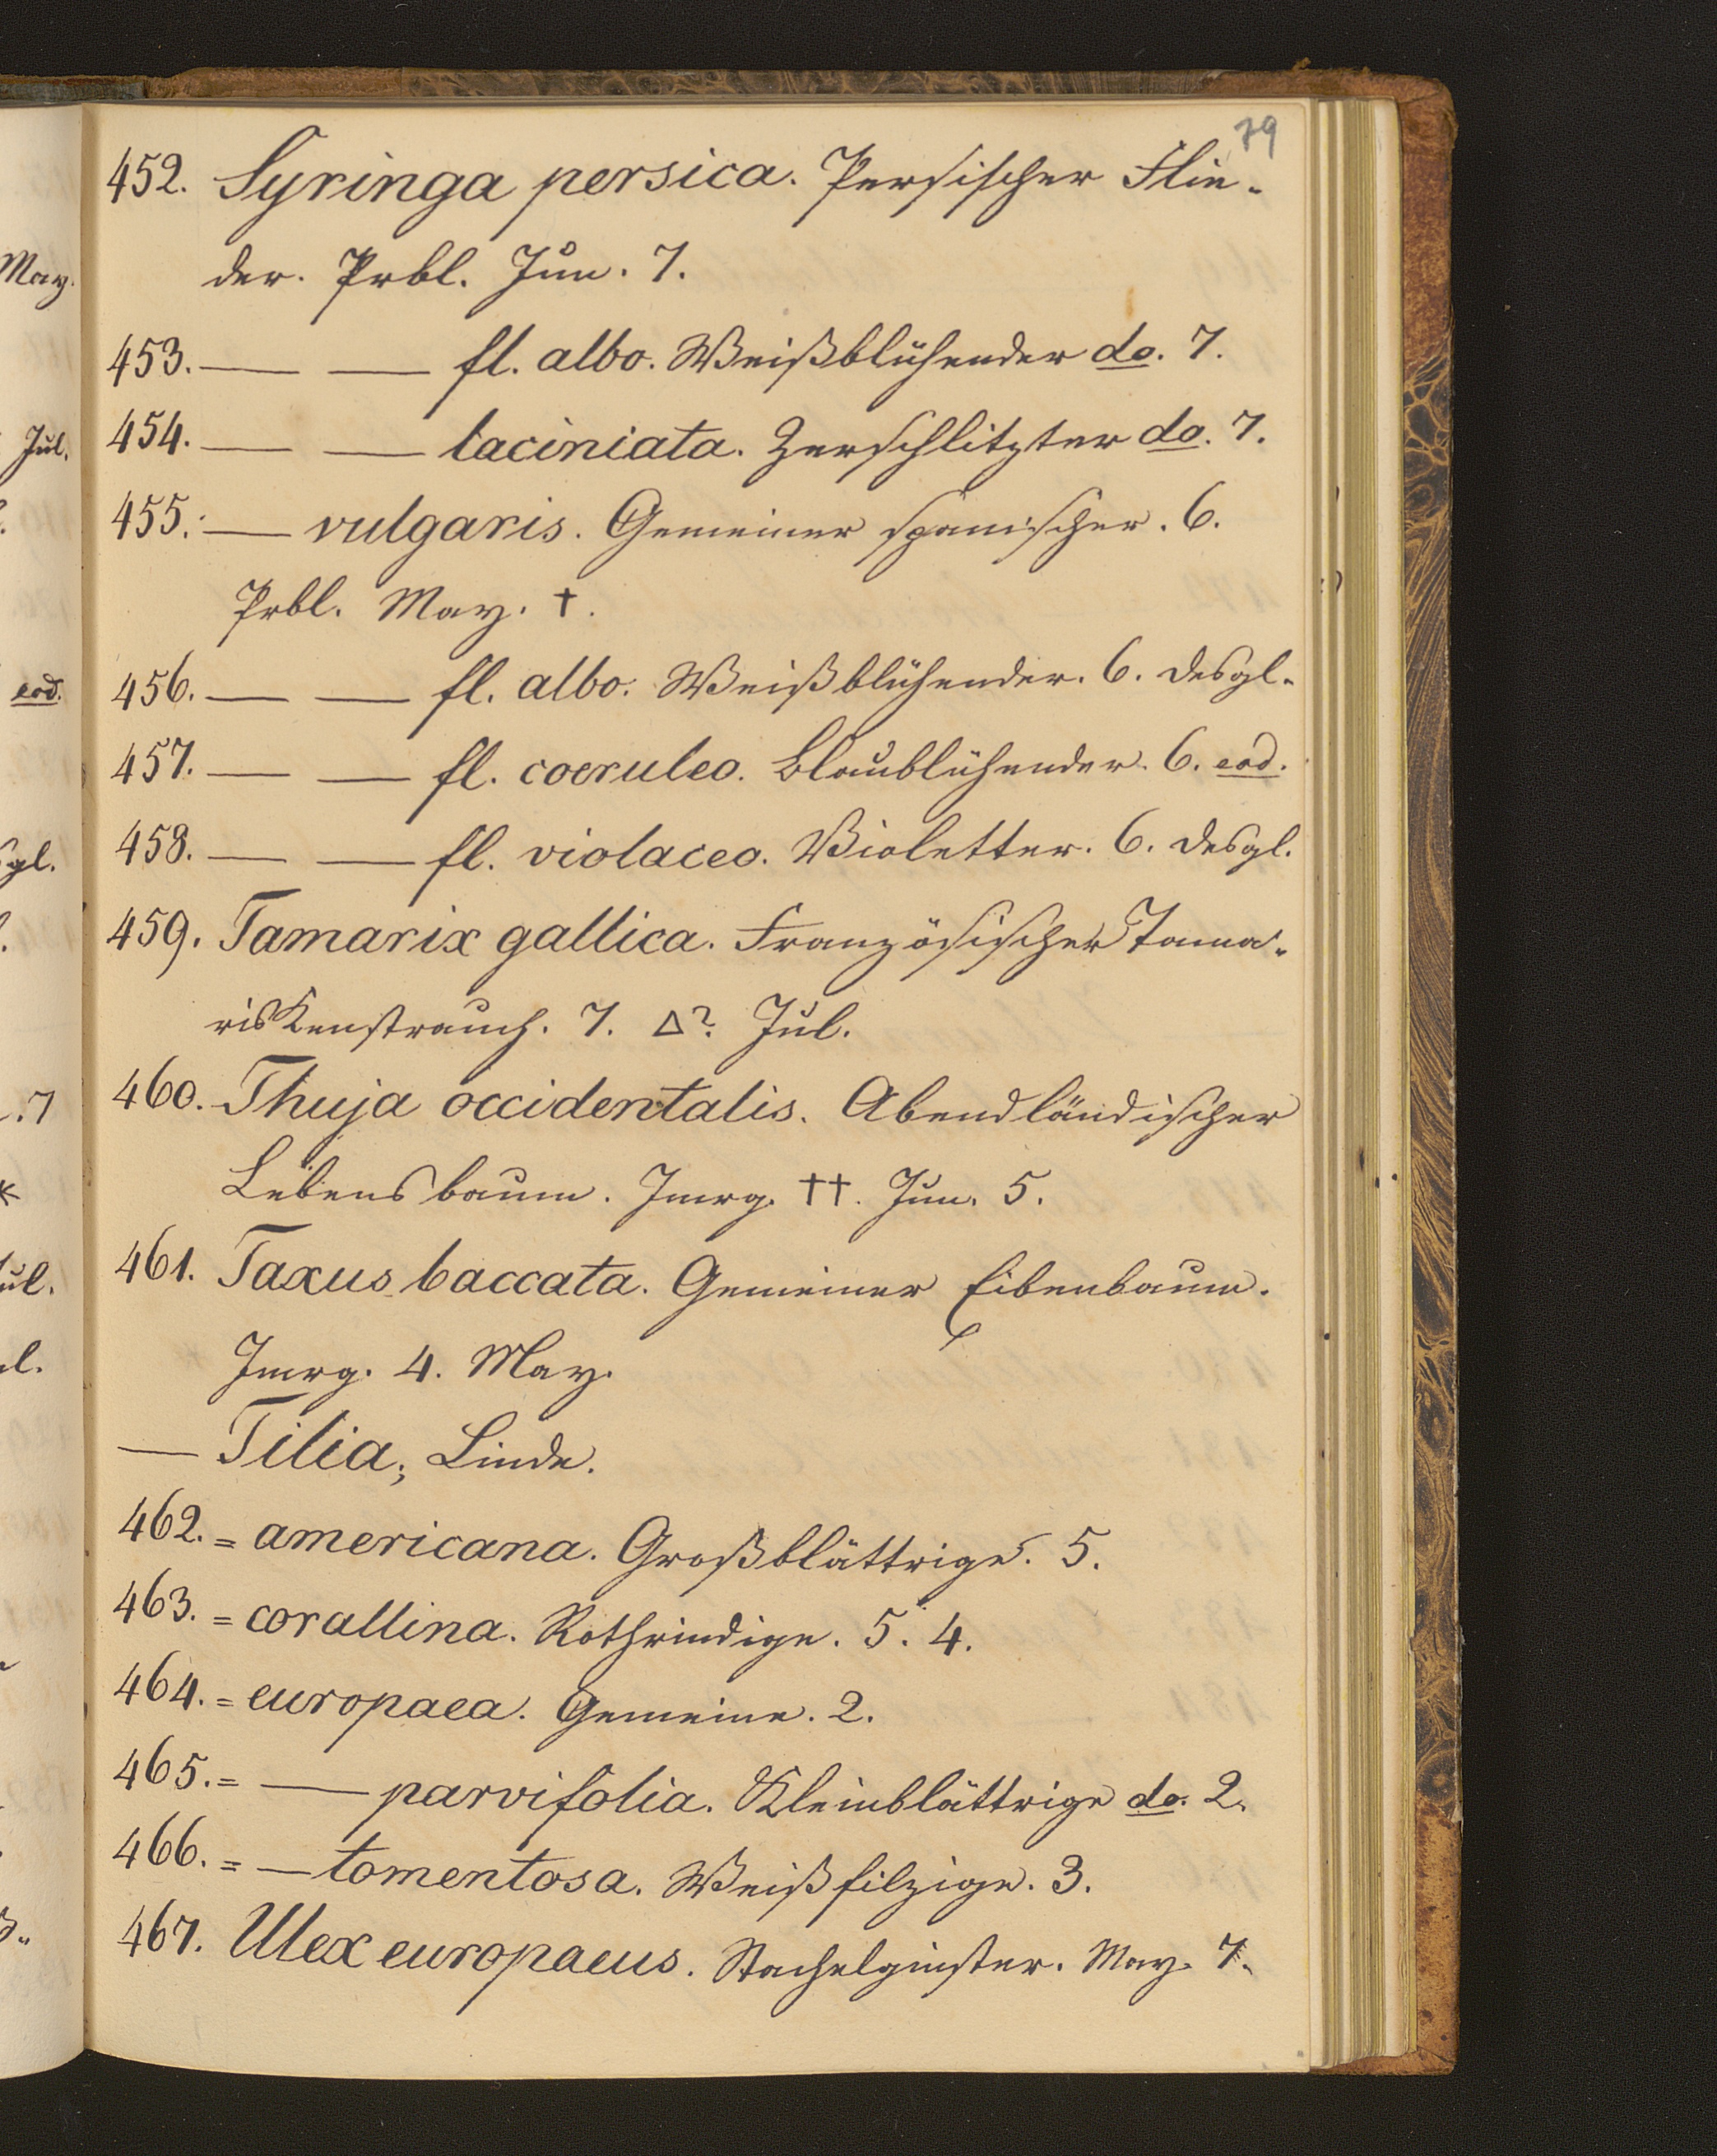 79
452. Syringa persica. Persischer Flie-
der. Prbl. Jun. 7.
453. — — fl. albo. Weißblühender do. 7.
454. — — laciniata. Zerschlitzter do. 7.
455. — vulgaris. Gemeiner spanischer. 6.
Prbl. May. †.
456. — — fl. albo. Weißblühender. 6. desgl.
457. — — fl. coeruleo. Blaublühender. 6. eod.
458. — — fl. violaceo. Violetter. 6. desgl.
459. Tamarix gallica. Französischer Tama-
riskenstrauch. 7. △? Jul.
460. Thuja occidentalis. Abendländischer
Lebensbaum. Jmrg. ††. Jun. 5.
461. Taxus baccata. Gemeiner Eibenbaum.
Jmrg. 4. May.
— Tilia; Linde.
462. = americana. Großblättrige. 5.
463. = corallina. Rothrindige. 5. 4.
464. = europaea. Gemeine. 2.
465. = — parvifolia. Kleinblättrige do. 2.
466. = — tomentosa. Weißfilzige. 3.
467. Ulex europaeus. Stachelginster. May. 7.
May.
Jul.
eod.
gl.
.7
*
ul.
l.